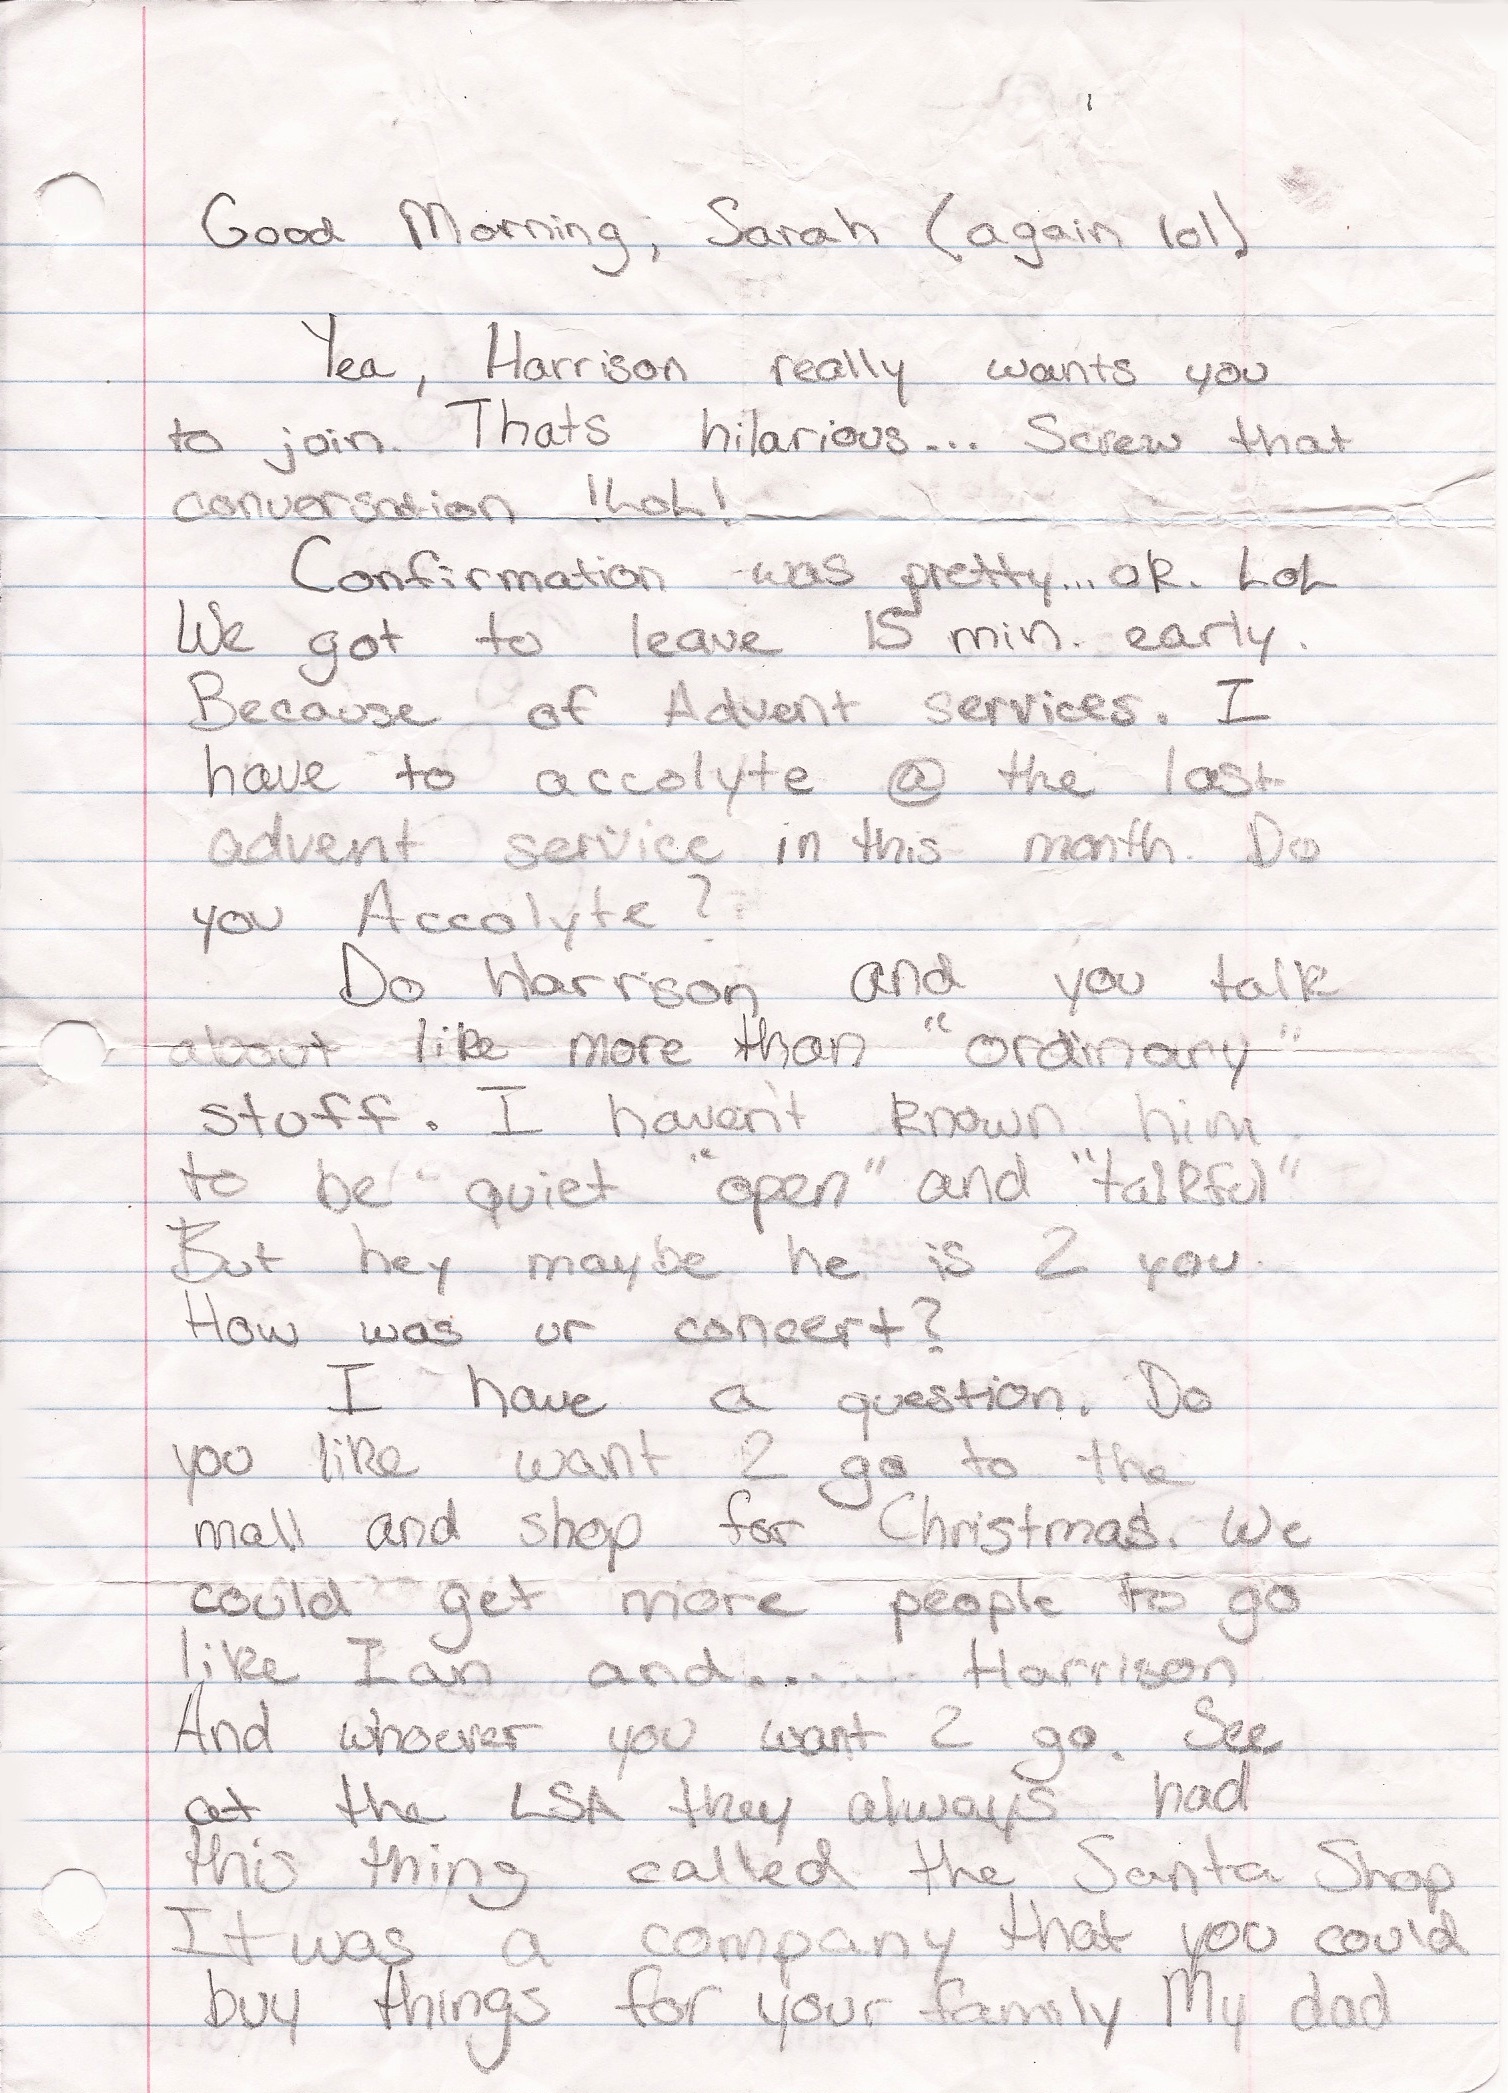 Good Morning, Sarah (again lol)
Yea, Harrison really wants you
to join. Thats hilarious... Screw that
conversation !LoL!
Confirmation was pretty... ok. LoL
We got to leave 15 min. early.
Because of Advent services. I
have to accolyte @ the last
advent service in this month. Do
you Accolyte?
Do Harrison and you talk
about like more than "ordinary"
stuff. I haven't known him
to be quiet "open" and "talkful"
But hey maybe he is 2 you.
How was ur concert?
I have a question. Do
you like want 2 go to the
mall and shop for Christmas. We
could get more people to go
like Ian and........ Harrison
And whoever you want 2 go. See
at the LSA they always had
this thing called the Santa Shop
It was a company that you could
buy things for your family My dad